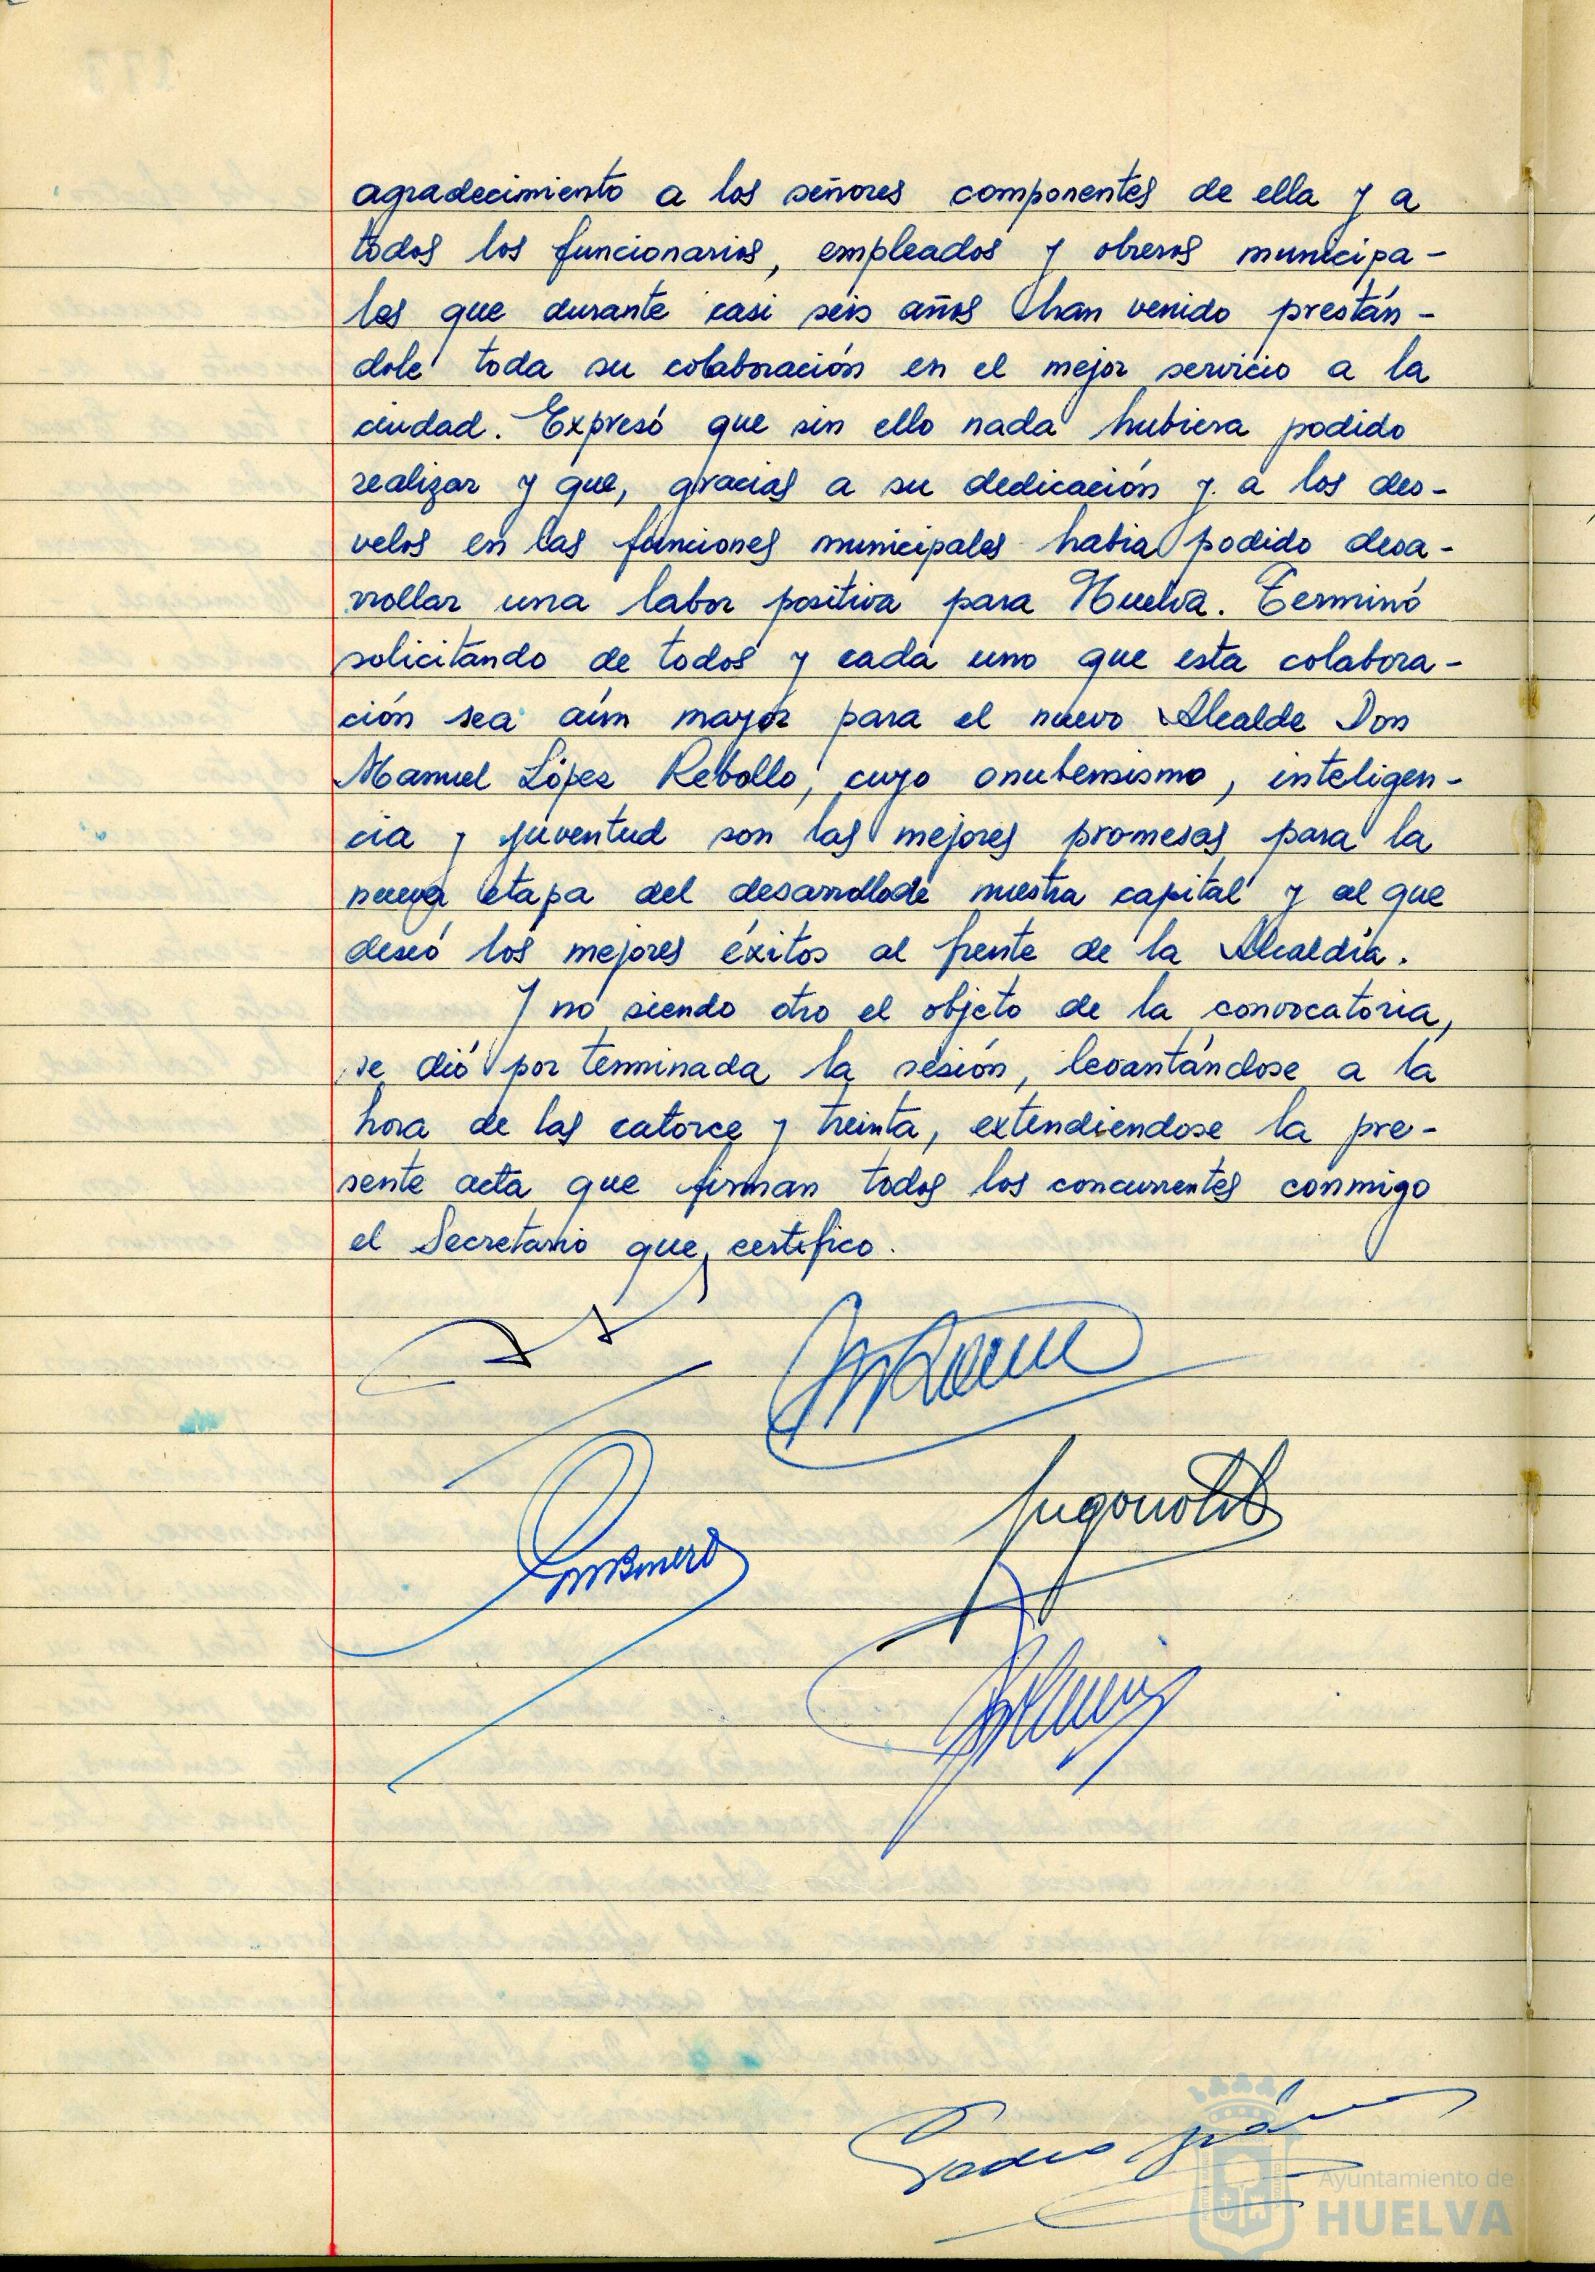 agradecimiento a los señores componentes de ella y a
todos los funcionarios, empleados y obreros municipa-
les que durante casi seis años han venido prestán-
dole toda su colaboración en el mejor servicio a la
ciudad. Expresó que sin ello nada hubiera podido
realizar y que, gracias a su dedicación y a los des-
velos en las funciones municipales habia podido desa-
rrollar una labor positiva para Huelva. Terminó
solicitando de todos y cada uno que esta colabora-
ción sea aún mayor para el nuevo Alcalde Don
Manuel López Rebollo, cuyo onubensismo, inteligen-
cia y juventud son las mejores promesas para la
nueva etapa del desarrollode nuestra capital y al que
deseó los mejores éxitos al frente de la Alcaldía.
Y no siendo otro el objeto de la convocatoria,
se dió por terminada la sesión, levantándose a la
hora de las catorce y treinta, extendiendose la pre-
sente acta que firman todos los concurrentes conmigo
el Secretario que certifico.
Ayuntamiento de
HUELVA